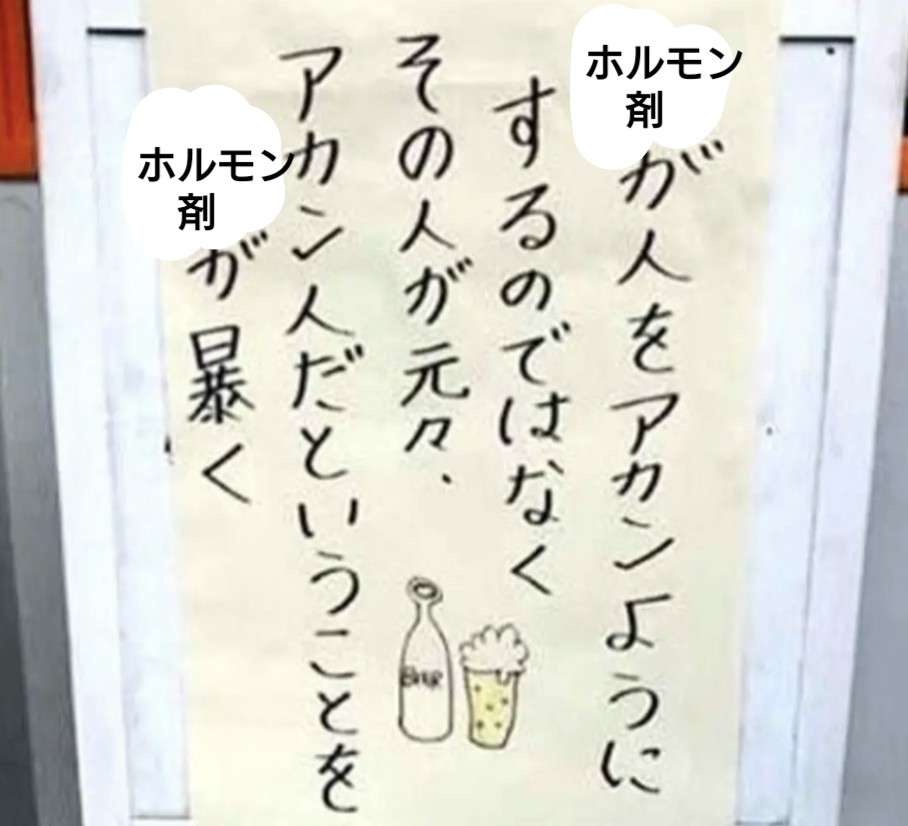 ホルモン
剤
が人をアカンように
するのではなく
その人が元々、
アカン人だということを
ホルモン
剤
が暴く
BEER